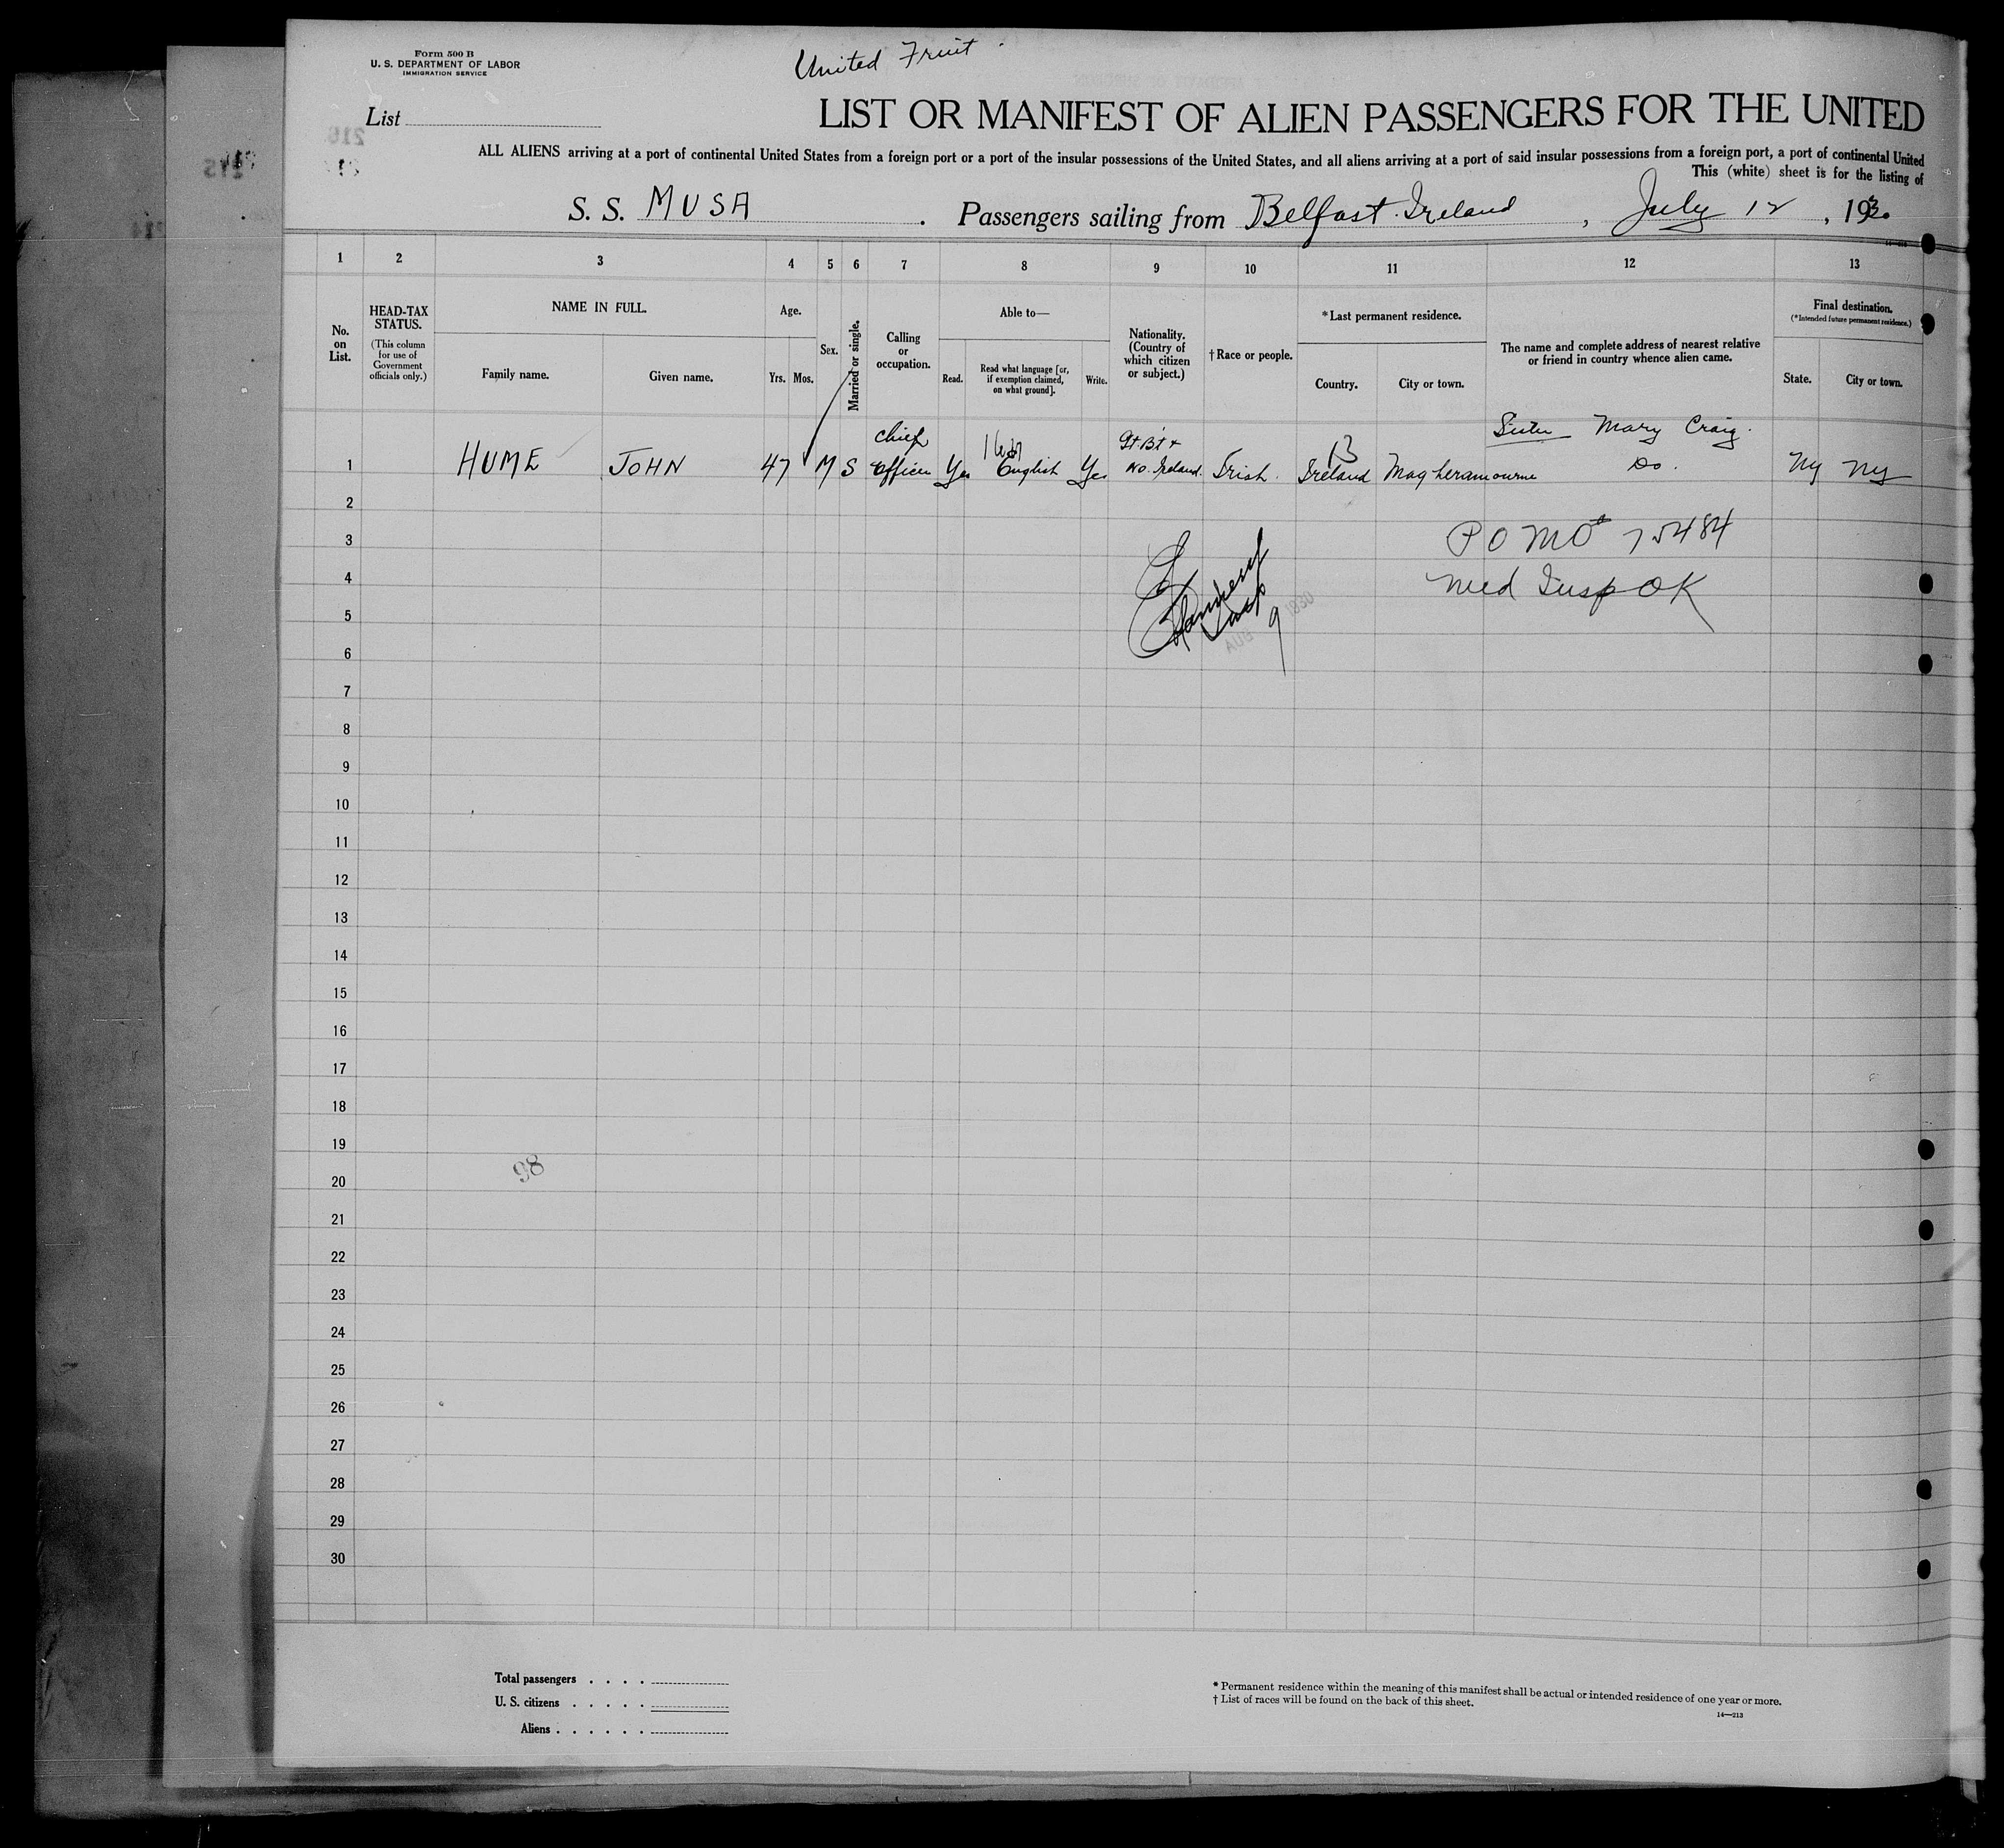 Form 500 B
U. S. DEPARTMENT OF LABOR
IMMIGRATION SERVICE
United Fruit
List
LIST OR MANIFEST OF ALIEN PASSENGERS FOR THE UNITED
ALL ALIENS arriving at a port of continental United States from a foreign port or a port of the insular possessions of the United States, and all aliens arriving at a port of said insular possessions from a foreign port, a port of continental United
This (white) sheet is for the listing of
S. S. MUSA. Passengers sailing from Belfast Ireland, July 12, 1930
1 2 3 4 5 6 7 8 9 10 11 12 13
No. on List.
HEAD-TAX STATUS.
(This column for use of Government officials only.)
NAME IN FULL.
Family name. Given name.
Age.
Yrs. Mos.
Sex.
Married or single.
Calling or occupation.
Able to—
Read. Read what language [or, if exemption claimed, on what ground]. Write.
Nationality. (Country of which citizen or subject.)
†Race or people.
*Last permanent residence.
Country. City or town.
The name and complete address of nearest relative or friend in country whence alien came.
Final destination.
(*Intended future permanent residence.)
State. City or town.
1 HUME JOHN 47 M S Chief Officer Yes English Yes Gt. Bt & No. Ireland. Irish. Ireland Magheramourne Sister Mary Craig. Do. NY NY
13
2
3 PO MO 75484
4 Med Insp OK
5
6
7
8
9
10
11
12
13
14
15
16
17
18
19
98
20
21
22
23
24
25
26
27
28
29
30
Total passengers . . . .
U. S. citizens . . . . .
Aliens . . . . . .
* Permanent residence within the meaning of this manifest shall be actual or intended residence of one year or more.
† List of races will be found on the back of this sheet.
14—213